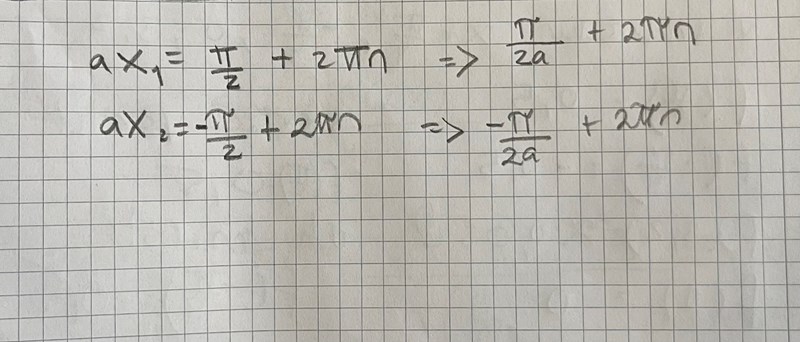 ax₁ = π/2 + 2πn => π/2a + 2πn
ax₂ = -π/2 + 2πn => -π/2a + 2πn